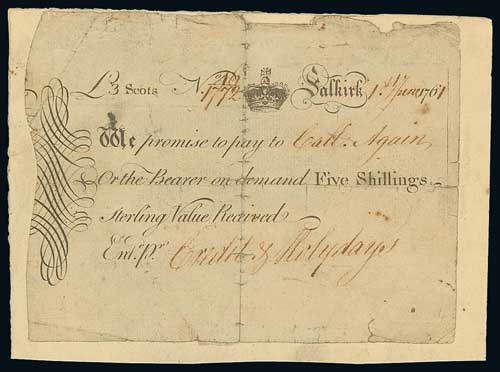 £3 Scots N. 1772 Falkirk 1st June 1761
We promise to pay to Call: Again
Or the Bearer on demand Five Shillings
Sterling Value Received
Ent. Pr. Credit & Holydays